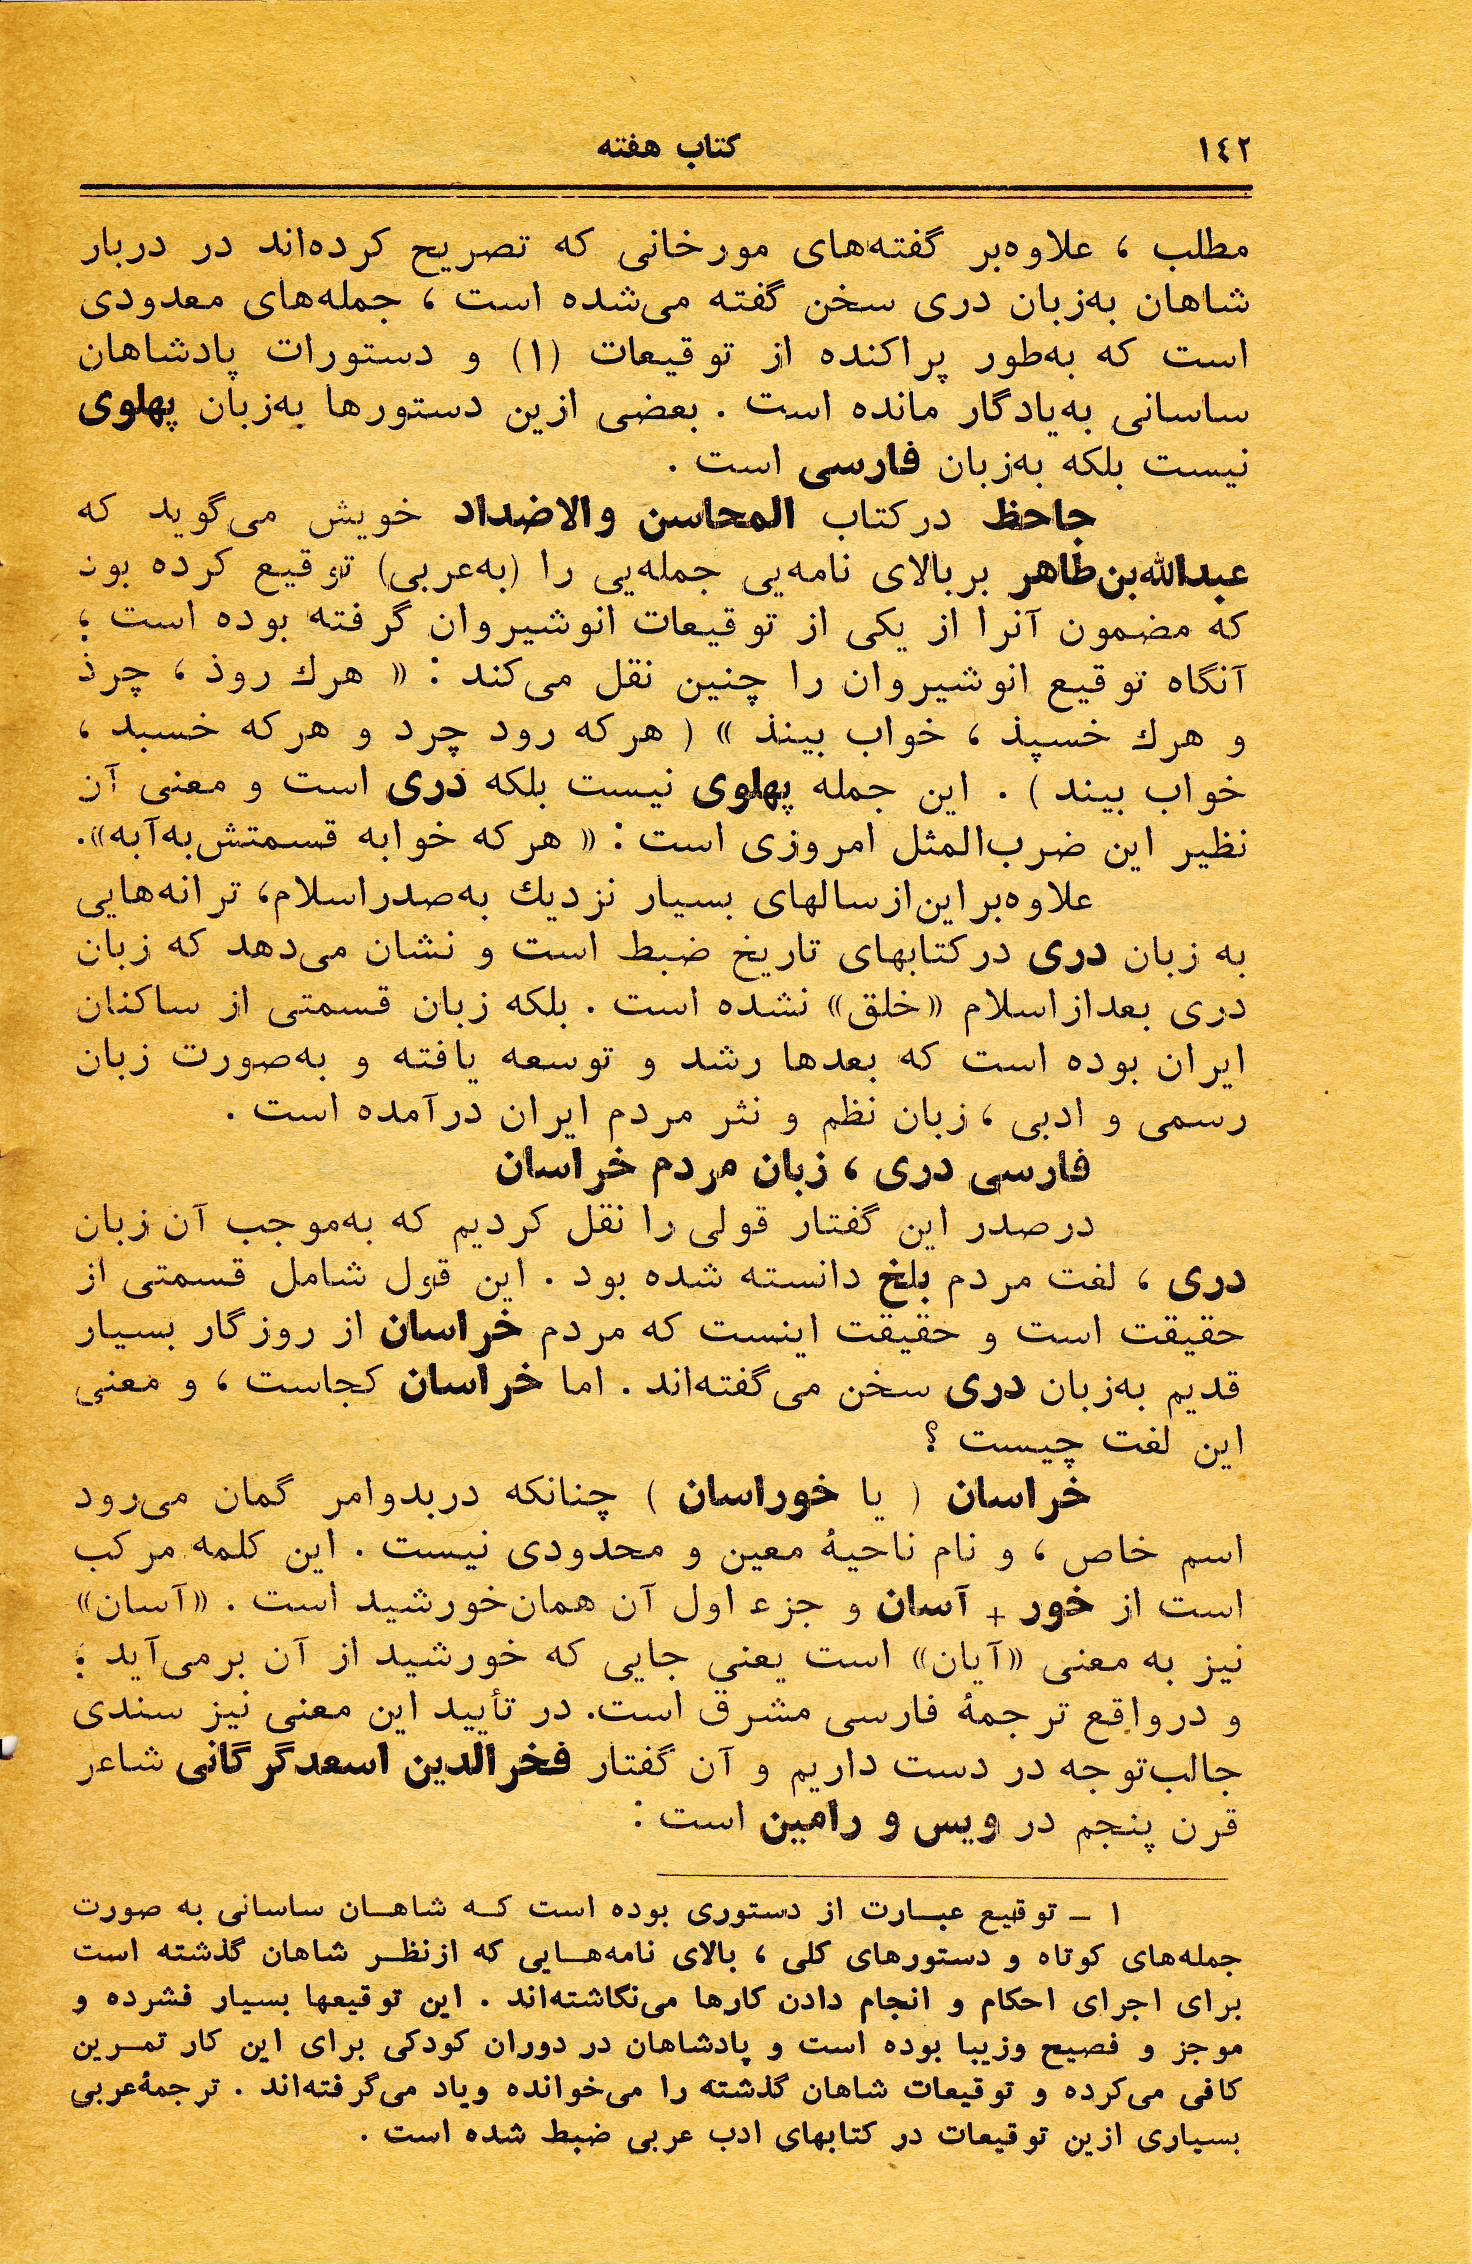 ۱۴۲ کتاب هفته
مطلب ، علاوه‌بر گفته‌های مورخانی که تصریح کرده‌اند در دربار
شاهان به‌زبان دری سخن گفته می‌شده است ، جمله‌های معدودی
است که به‌طور پراکنده از توقیعات (۱) و دستورات پادشاهان
ساسانی به‌یادگار مانده است . بعضی ازین دستورها به‌زبان پهلوی
نیست بلکه به‌زبان فارسی است .
جاحظ درکتاب المحاسن والاضداد خویش می‌گوید که
عبدالله‌بن‌طاهر بربالای نامه‌یی جمله‌یی را (به‌عربی) توقیع کرده بود
که مضمون آنرا از یکی از توقیعات انوشیروان گرفته بوده است ؛
آنگاه توقیع انوشیروان را چنین نقل می‌کند : « هرك روذ ، چرذ
و هرك خسپذ ، خواب بینذ » ( هرکه رود چرد و هرکه خسبد ،
خواب بیند ) . این جمله پهلوی نیست بلکه دری است و معنی آن
نظیر این ضرب‌المثل امروزی است : « هرکه خوابه قسمتش‌به‌آبه».
علاوه‌براین‌ازسالهای بسیار نزدیك به‌صدراسلام، ترانه‌هایی
به زبان دری درکتابهای تاریخ ضبط است و نشان می‌دهد که زبان
دری بعدازاسلام «خلق» نشده است . بلکه زبان قسمتی از ساکنان
ایران بوده است که بعدها رشد و توسعه یافته و به‌صورت زبان
رسمی و ادبی ، زبان نظم و نثر مردم ایران درآمده است .
فارسی دری ، زبان مردم خراسان
درصدر این گفتار قولی را نقل کردیم که به‌موجب آن زبان
دری ، لغت مردم بلخ دانسته شده بود . این قول شامل قسمتی از
حقیقت است و حقیقت اینست که مردم خراسان از روزگار بسیار
قدیم به‌زبان دری سخن می‌گفته‌اند . اما خراسان کجاست ، و معنی
این لغت چیست ؟
خراسان ( یا خوراسان ) چنانکه دربدوامر گمان می‌رود
اسم خاص ، و نام ناحیهٔ معین و محدودی نیست . این کلمه مرکب
است از خور + آسان و جزء اول آن همان‌خورشید است . «آسان»
نیز به معنی «آیان» است یعنی جایی که خورشید از آن برمی‌آید ؛
و درواقع ترجمهٔ فارسی مشرق است. در تأیید این معنی نیز سندی
جالب‌توجه در دست داریم و آن گفتار فخرالدین اسعدگرگانی شاعر
قرن پنجم در ویس و رامین است :
۱ – توقیع عبارت از دستوری بوده است که شاهان ساسانی به صورت
جمله‌های کوتاه و دستورهای کلی ، بالای نامه‌هایی که ازنظر شاهان گذشته است
برای اجرای احکام و انجام دادن کارها می‌نگاشته‌اند . این توقیعها بسیار فشرده و
موجز و فصیح وزیبا بوده است و پادشاهان در دوران کودکی برای این کار تمرین
کافی می‌کرده و توقیعات شاهان گذشته را می‌خوانده ویاد می‌گرفته‌اند . ترجمهٔ‌عربی
بسیاری ازین توقیعات در کتابهای ادب عربی ضبط شده است .